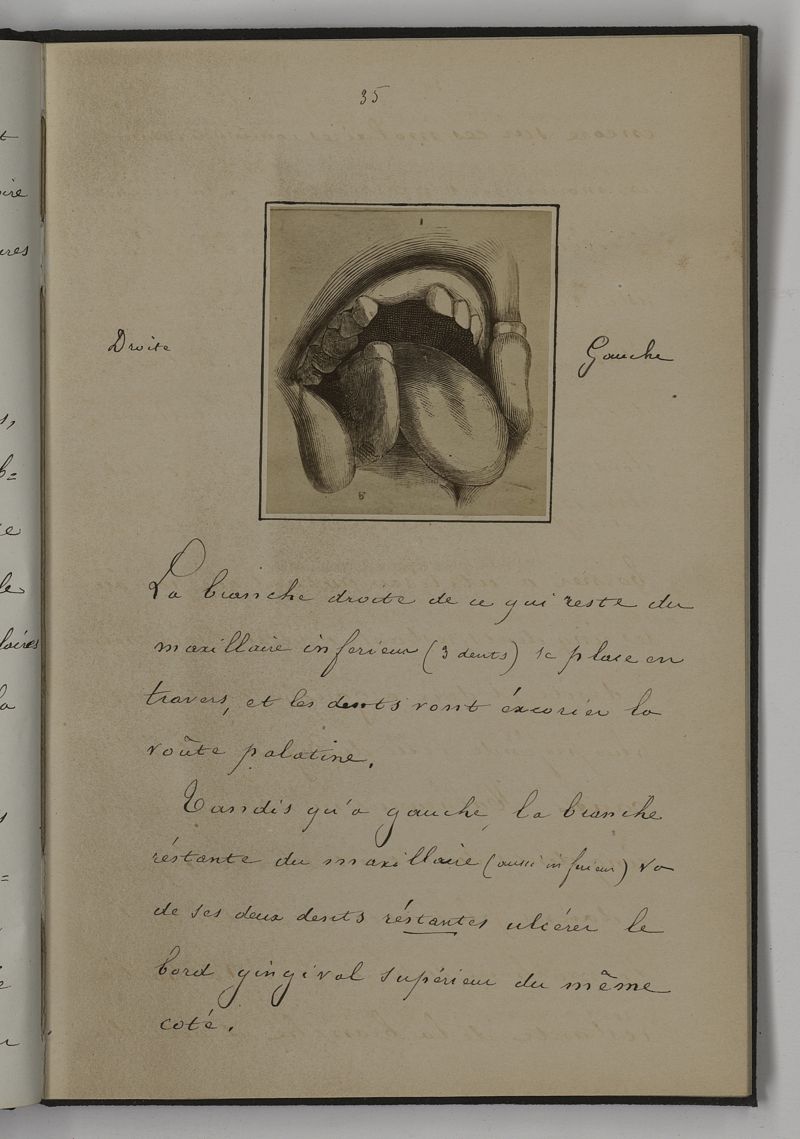 35
Droite
Gauche
La branche droite de ce qui reste du
maxillaire inferieur (3 dents) se place en
travers, et les dents vont éxcorier la
voûte palatine.
Tandis qu'a gauche, la branche
réstante du maxillaire (aussi inferieur) va
de ses deux dents réstantes ulcérer le
bord gingival supérieur du même
coté.